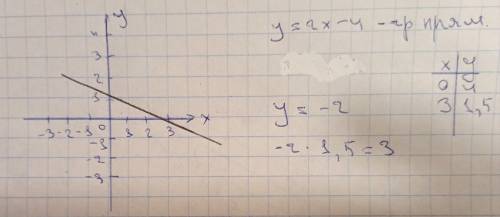 y
4
3
2
1
-3 -2 -1 0 1 2 3 x
-1
-2
-3
y = 2x-4 - гр прям.
x y
0 4
3 1,5
y = -2
-2 · 1,5 = 3